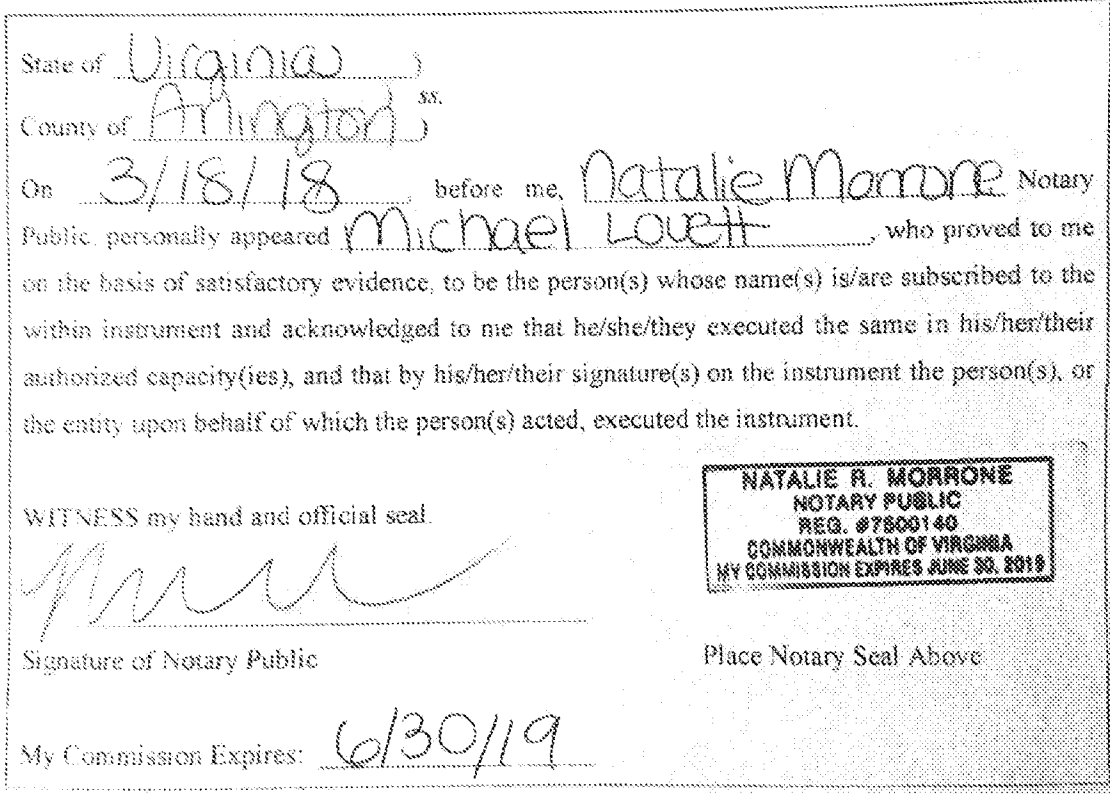 State of Virginia )
ss.
County of Arlington )
On 3/18/18, before me, Natalie Morrone Notary
Public, personally appeared Michael Lovett, who proved to me
on the basis of satisfactory evidence, to be the person(s) whose name(s) is/are subscribed to the
within instrument and acknowledged to me that he/she/they executed the same in his/her/their
authorized capacity(ies), and that by his/her/their signature(s) on the instrument the person(s), or
the entity upon behalf of which the person(s) acted, executed the instrument.
WITNESS my hand and official seal.
NATALIE R. MORRONE
NOTARY PUBLIC
REG. #7600140
COMMONWEALTH OF VIRGINIA
MY COMMISSION EXPIRES JUNE 30, 2019
Signature of Notary Public
Place Notary Seal Above
My Commission Expires: 6/30/19